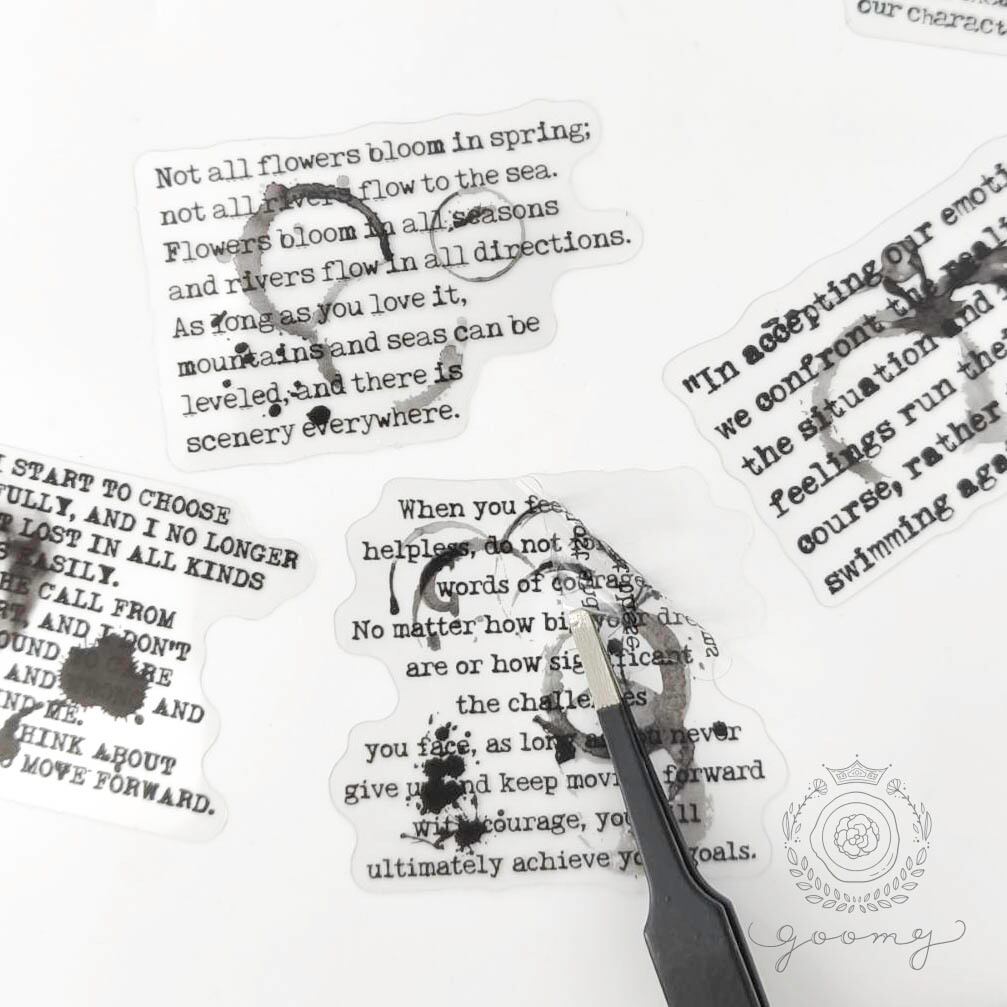 our charact
Not all flowers bloom in spring;
not all rivers flow to the sea.
Flowers bloom in all seasons
and rivers flow in all directions.
As long as you love it,
mountains and seas can be
leveled, and there is
scenery everywhere.
"In accepting our emoti
we confront the reali
the situation and
feelings run thei
course, rather
swimming aga
I START TO CHOOSE
FULLY, AND I NO LONGER
T LOST IN ALL KINDS
S EASILY.
HE CALL FROM
RT, AND I DON'T
OUND TO CARE
AND AND
ND ME.
THINK ABOUT
O MOVE FORWARD.
When you fee
helpless, do not
words of courage
No matter how big your dreams
are or how significant
the challenges
you face, as long as you never
give up and keep moving forward
with courage, you will
ultimately achieve your goals.
goomg